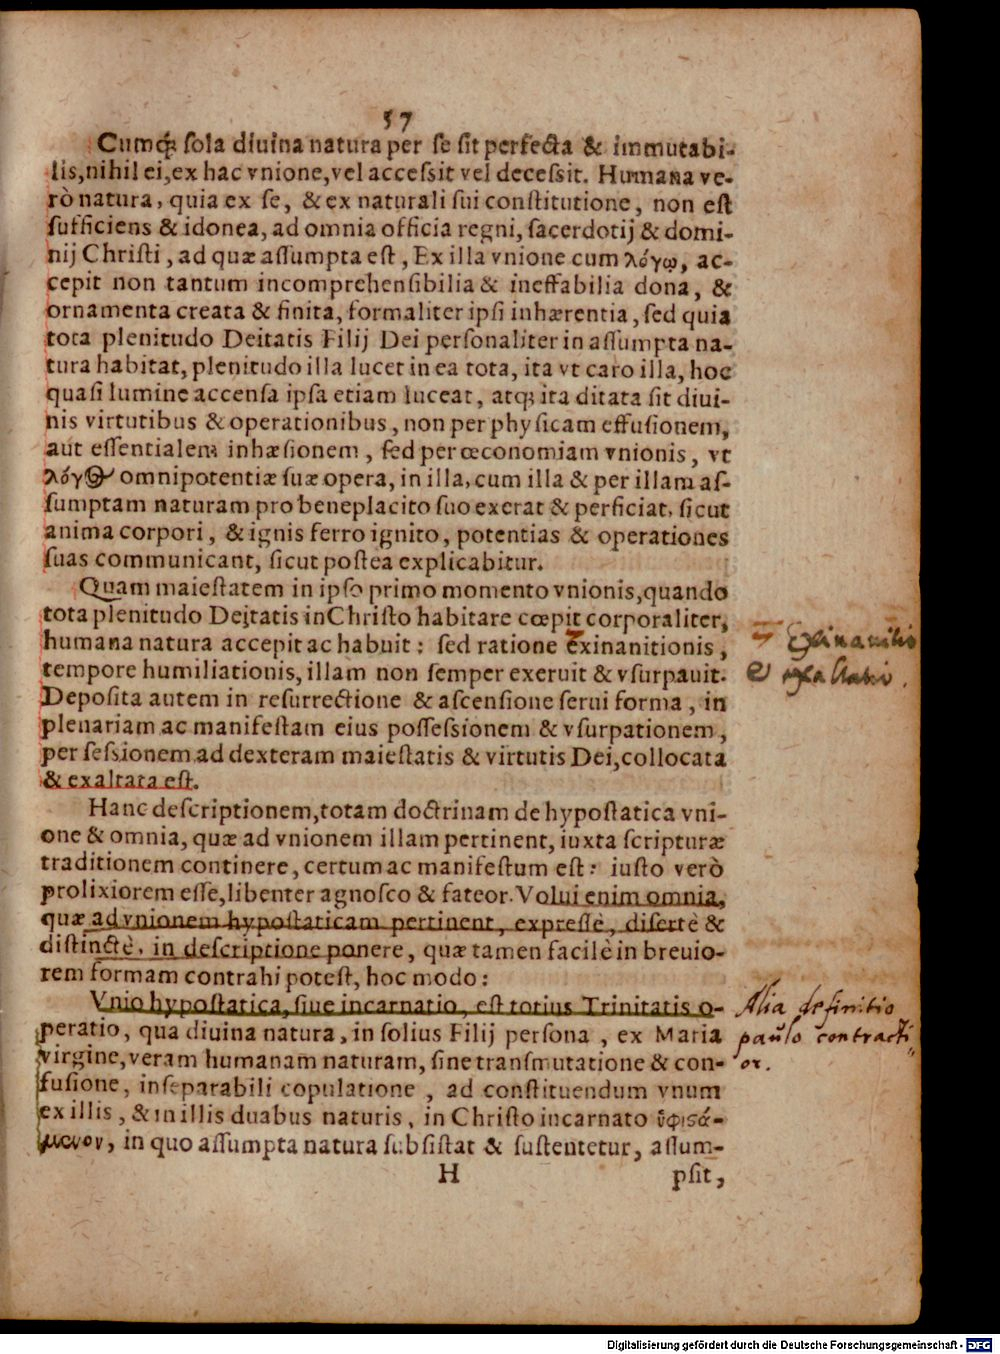 57
Cumq́; ſola diuina natura per ſe ſit perfecta & immutabi-
lis, nihil ei, ex hac vnione, vel acceſsit vel deceſsit. Humana ve-
rò natura, quia ex ſe, & ex naturali ſui conſtitutione, non eſt
ſufficiens & idonea, ad omnia officia regni, ſacerdotij & domi-
nij Chriſti, ad quæ aſſumpta eſt, Ex illa vnione cum λόγῳ, ac-
cepit non tantum incomprehenſibilia & ineffabilia dona, &
ornamenta creata & finita, formaliter ipſi inhærentia, ſed quia
tota plenitudo Deitatis Filij Dei perſonaliter in aſſumpta na-
tura habitat, plenitudo illa lucet in ea tota, ita vt caro illa, hoc
quaſi lumine accenſa ipſa etiam luceat, atq; ita ditata ſit diui-
nis virtutibus & operationibus, non per phyſicam effuſionem,
aut eſſentialem inhæſionem, ſed per œconomiam vnionis, vt
λόγος omnipotentiæ ſuæ opera, in illa, cum illa & per illam aſ-
ſumptam naturam pro beneplacito ſuo exerat & perficiat, ſicut
anima corpori, & ignis ferro ignito, potentias & operationes
ſuas communicant, ſicut poſtea explicabitur.
Quam maieſtatem in ipſo primo momento vnionis, quando
tota plenitudo Deitatis in Chriſto habitare cœpit corporaliter,
humana natura accepit ac habuit: ſed ratione exinanitionis,
tempore humiliationis, illam non ſemper exeruit & vſurpauit.
Depoſita autem in reſurrectione & aſcenſione ſerui forma, in
plenariam ac manifeſtam eius poſſeſsionem & vſurpationem,
per ſeſsionem ad dexteram maieſtatis & virtutis Dei, collocata
& exaltata eſt.
Exinanitio
& exaltatio.
Hanc deſcriptionem, totam doctrinam de hypoſtatica vni-
one & omnia, quæ ad vnionem illam pertinent, iuxta ſcripturæ
traditionem continere, certum ac manifeſtum eſt: iuſto verò
prolixiorem eſſe, libenter agnoſco & fateor. Volui enim omnia,
quæ ad vnionem hypoſtaticam pertinent, expreſſè, diſertè &
diſtinctè, in deſcriptione ponere, quæ tamen facilè in breuio-
rem formam contrahi poteſt, hoc modo:
Vnio hypoſtatica, ſiue incarnatio, eſt totius Trinitatis o-
peratio, qua diuina natura, in ſolius Filij perſona, ex Maria
virgine, veram humanam naturam, ſine transmutatione & con-
fuſione, inſeparabili copulatione, ad conſtituendum vnum
ex illis, & in illis duabus naturis, in Chriſto incarnato ὑφιςά-
μενον, in quo aſſumpta natura ſubſiſtat & ſuſtentetur, aſſum-
Alia definitio
paulo contracti-
or.
H
pſit,
Digitalisierung gefördert durch die Deutsche Forschungsgemeinschaft - DFG